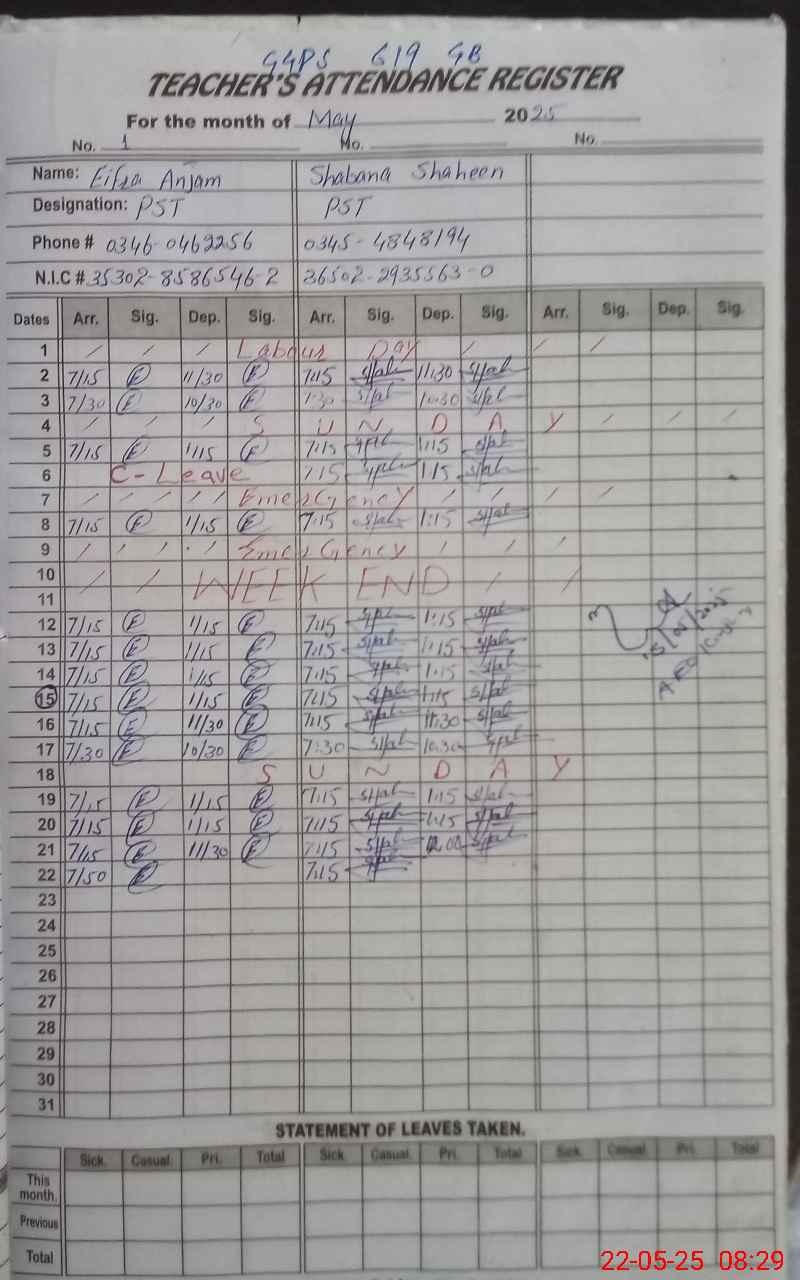 GGPS 619 GB
TEACHER'S ATTENDANCE REGISTER
For the month of May 2025
No. 1 No. No.
Name: Eifza Anjam Shabana Shaheen
Designation: PST PST
Phone # 0346-0462256 0345-4848194
N.I.C # 35302-8586546-2 36502-2935563-0
Dates Arr. Sig. Dep. Sig. Arr. Sig. Dep. Sig. Arr. Sig. Dep. Sig.
1 / / / Labour Day / / /
2 7/15 E 11/30 E 7:15 11:30
3 7/30 E 10/30 E 7:30 10:30
4 / / / S U N D A Y / / /
5 7/15 E 1/15 E 7:15 1:15
6 C-Leave 7:15 1:15
7 / / / / Emergency / / / /
8 7/15 E 1/15 E 7:15 1:15
9 / / / / Emergency / / /
10 / / WEEK END / /
11
12 7/15 E 1/15 E 7:15 1:15
13 7/15 E 1/15 E 7:15 1:15
14 7/15 E 1/15 E 7:15 1:15
15 7/15 E 1/15 E 7:15 1:15
16 7/15 E 11/30 E 7:15 11:30
17 7/30 E 10/30 E 7:30 10:30
18 S U N D A Y
19 7/15 E 1/15 E 7:15 1:15
20 7/15 E 1/15 E 7:15 1:15
21 7/15 E 11/30 E 7:15
22 7/50 E 7:15
23
24
25
26
27
28
29
30
31
15/05/2025
AEO
STATEMENT OF LEAVES TAKEN.
Sick. Casual. Pri. Total Sick. Casual. Pri. Total Sick. Casual. Pri. Total
This month.
Previous
Total
22-05-25 08:29